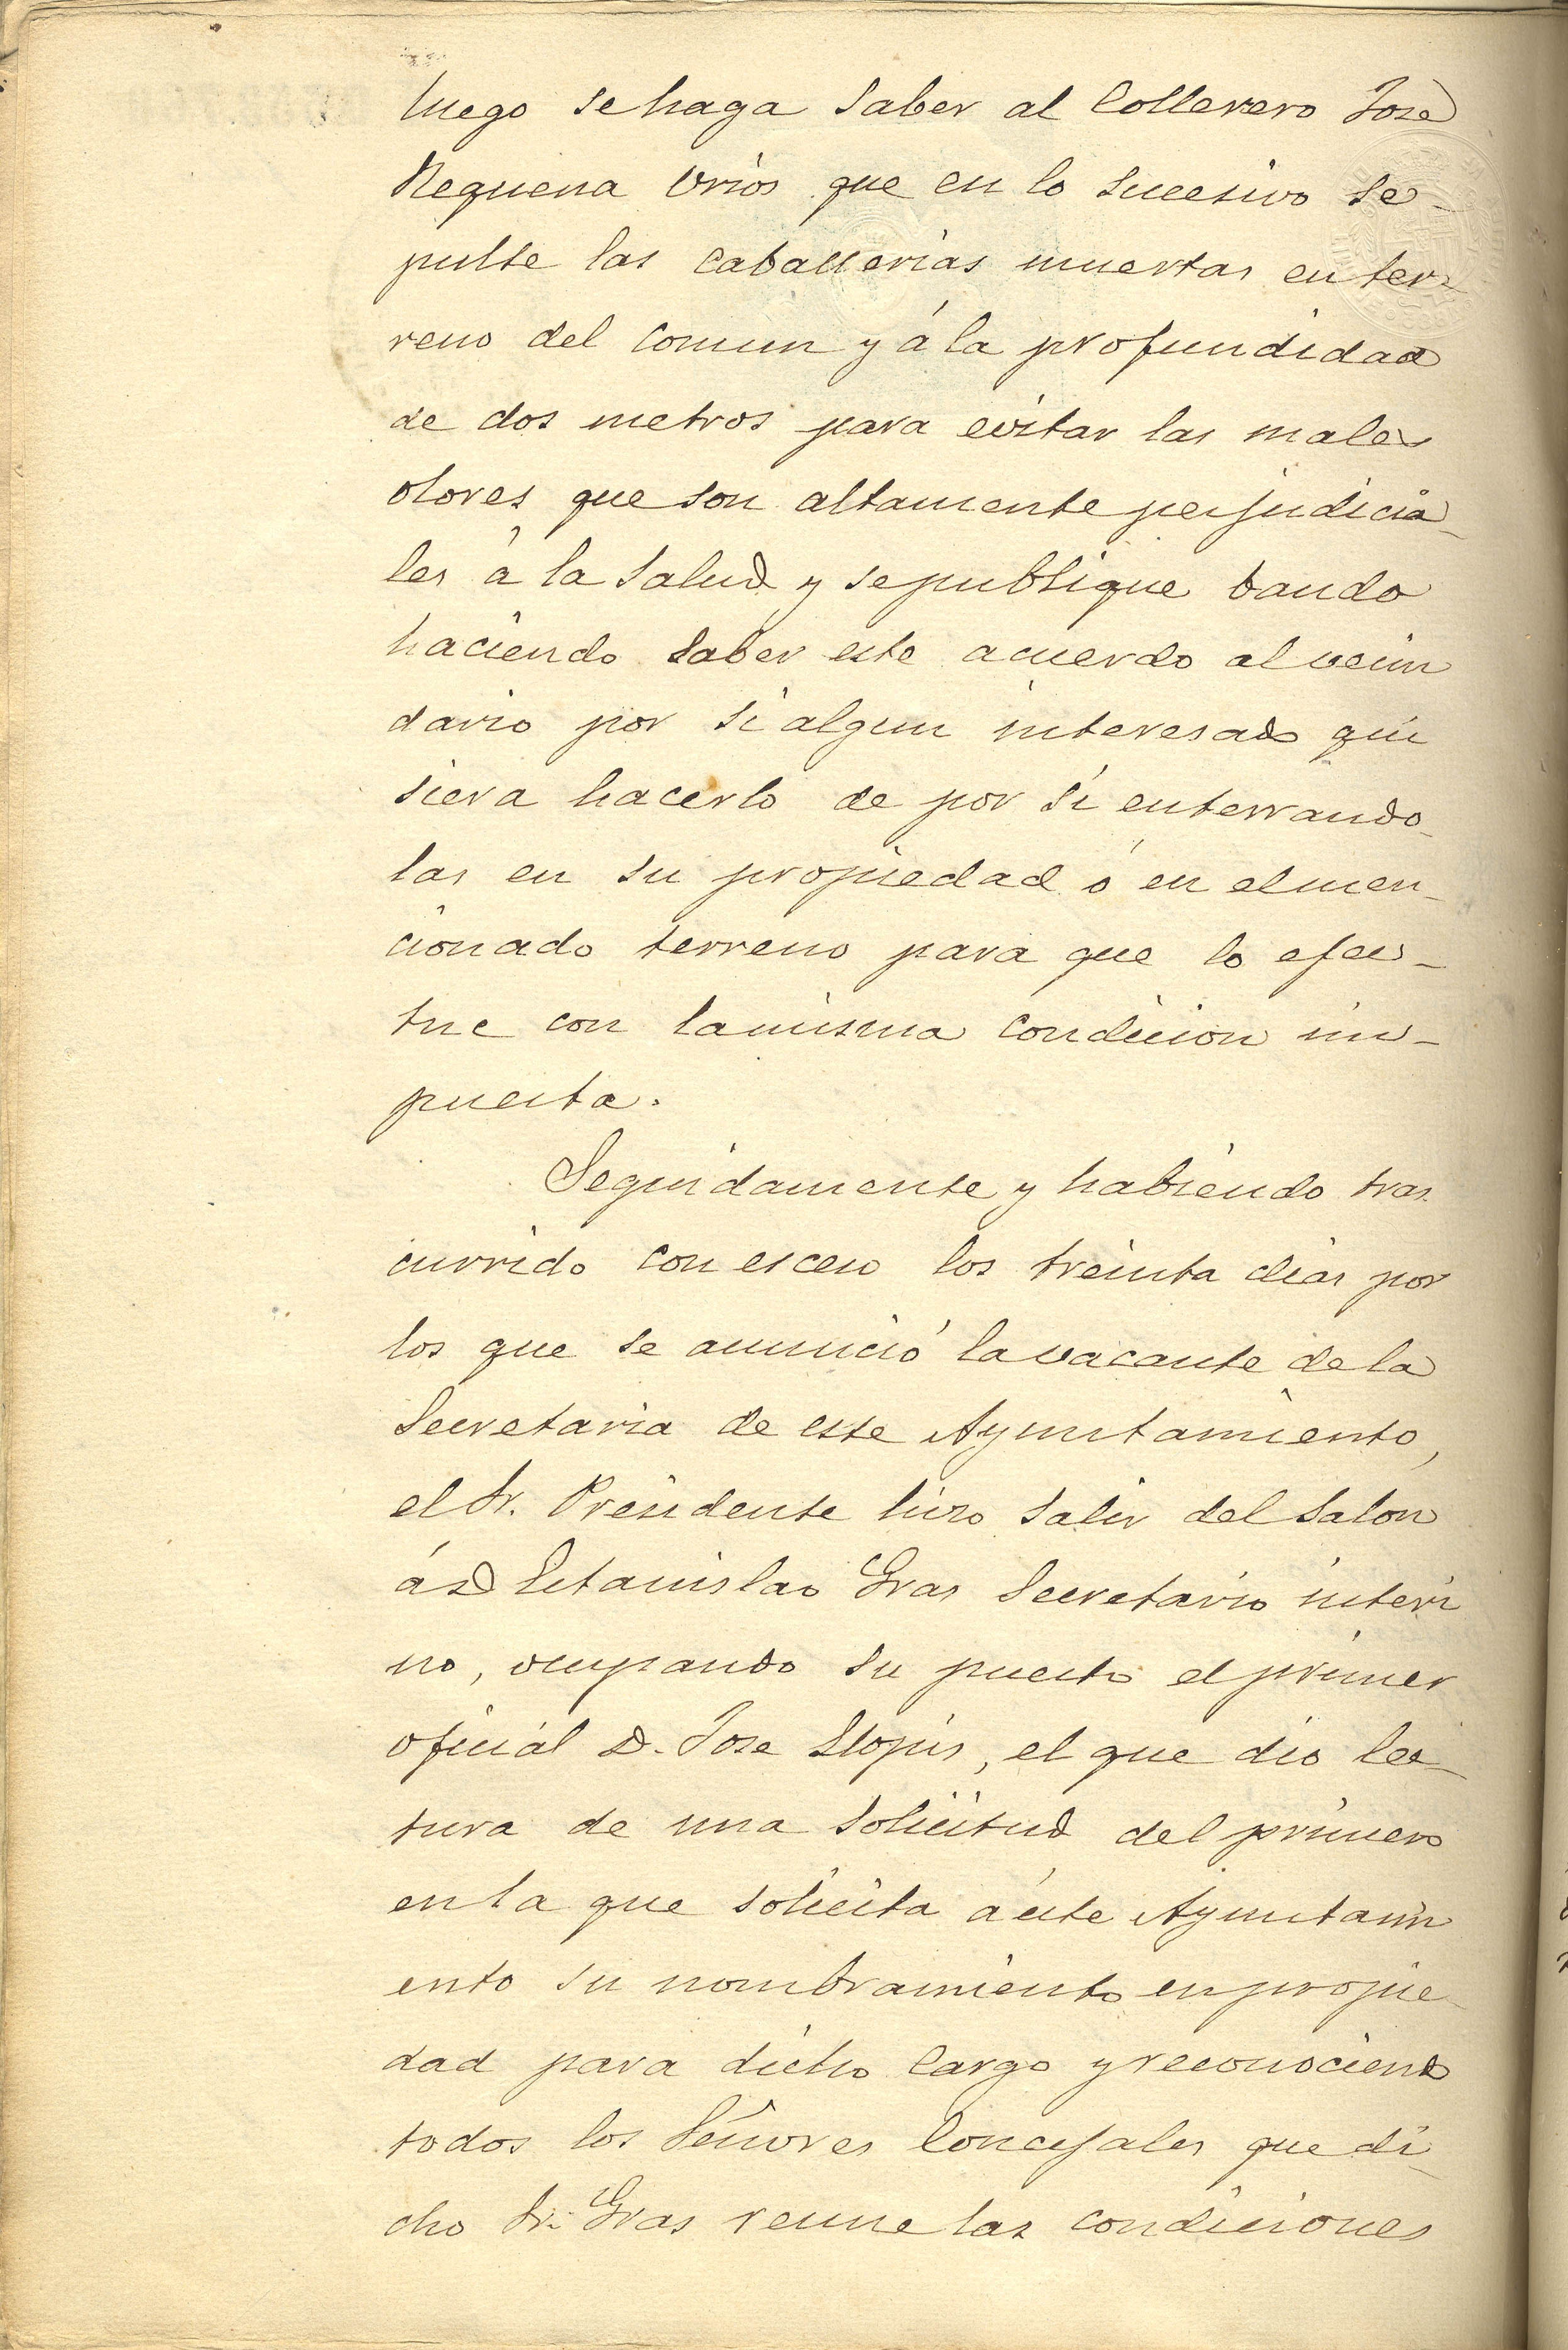 luego se haga saber al Collerero José
Requena Urios que en lo sucesivo se-
pulte las caballerias muertas en ter-
reno del comun y á la profundidad
de dos metros para evitar las males
olores que son altamente perjudicia-
les á la salud y se publique bando
haciendo saber este acuerdo al vecin
dario por si algun interesado qui
siera hacerlo de por si enterrando-
las en su propiedad ó en el men-
cionado terreno para que lo efec-
tue con la misma condicion im-
puesta.
Seguidamente y habiendo tras
currido con esceso los treinta dias por
los que se anunció la vacante de la
Secretaria de este Ayuntamiento,
el Sr. Presidente hizo salir del salon
á D Estanislao Gras Secretario interi
no, ocupando su puesto el primer
oficial D. Jose Llopis, el que dio lec-
tura de una solicitud del primero
en la que solicita á este Ayuntami
ento su nombramiento en propie-
dad para dicho cargo y reconociendo
todos los Señores Concejales que di-
cho Sr. Gras reune las condiciones